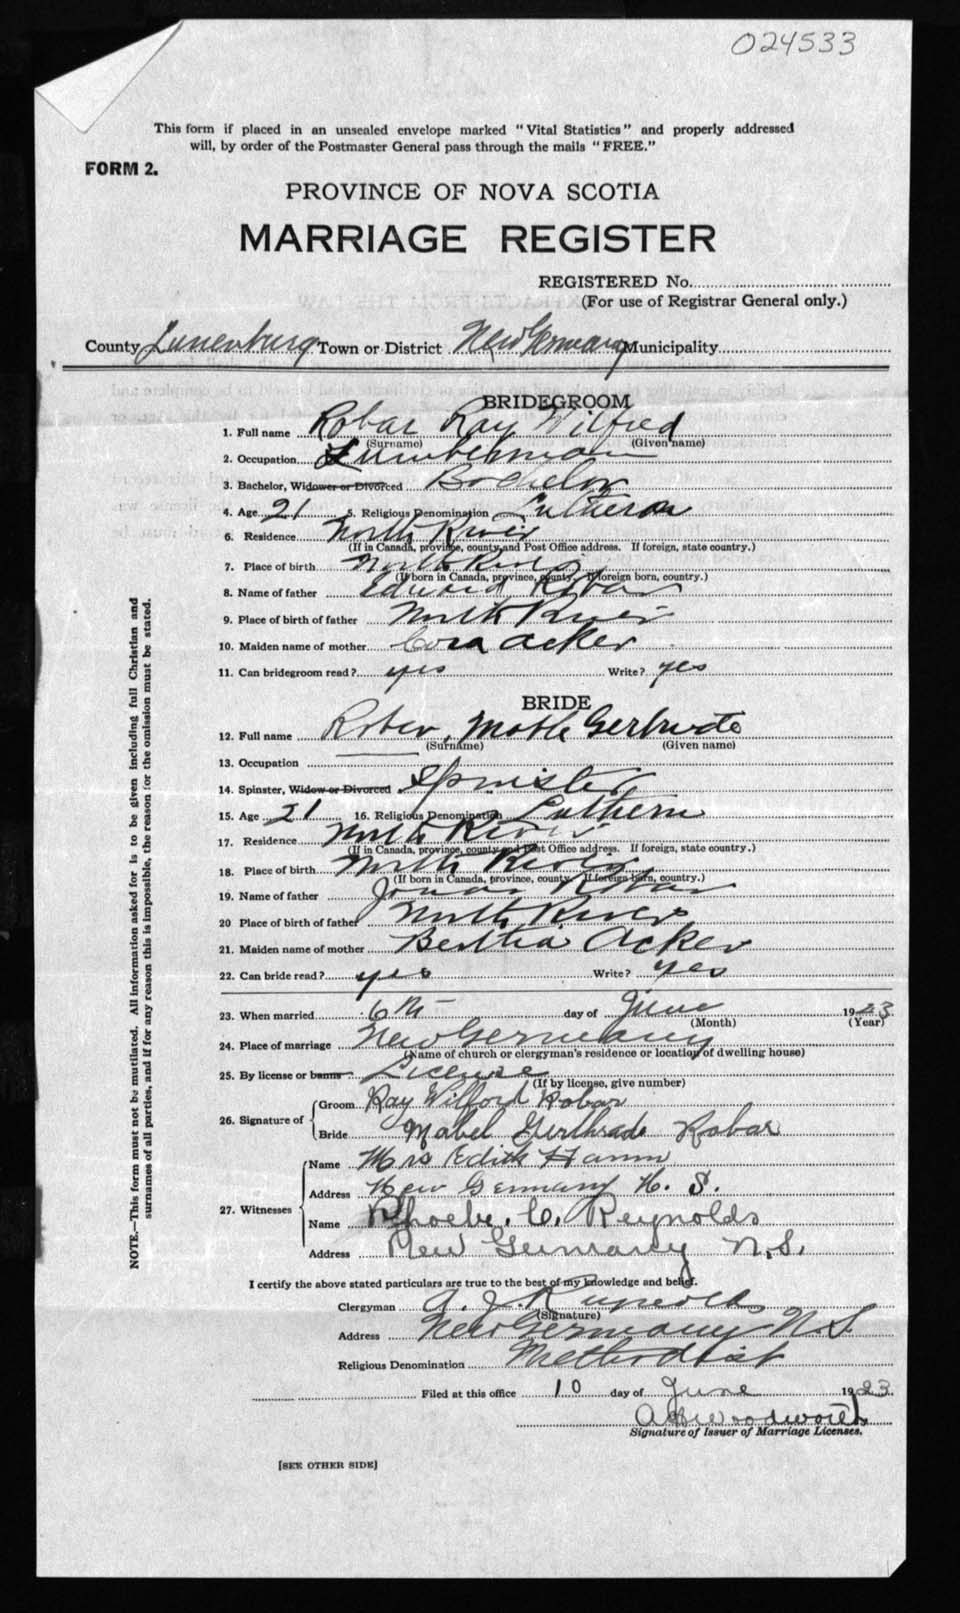 024533
This form if placed in an unsealed envelope marked "Vital Statistics" and properly addressed
will, by order of the Postmaster General pass through the mails "FREE."
FORM 2.
PROVINCE OF NOVA SCOTIA
MARRIAGE REGISTER
REGISTERED No.
(For use of Registrar General only.)
County Lunenburg Town or District New Germany Municipality
BRIDEGROOM
1. Full name Robar Ray Wilfred
(Surname) (Given name)
2. Occupation Lumberman
3. Bachelor, Widower or Divorced Bachelor
4. Age 21 5. Religious Denomination Lutheran
6. Residence North River
(If in Canada, province, county and Post Office address. If foreign, state country.)
7. Place of birth North River
(If born in Canada, province, county. If foreign born, country.)
8. Name of father Edward Robar
9. Place of birth of father North River
10. Maiden name of mother Cora Acker
11. Can bridegroom read? yes Write? yes
BRIDE
12. Full name Robar, Gertrude
(Surname) (Given name)
13. Occupation
14. Spinster, Widow or Divorced Spinster
15. Age 21 16. Religious Denomination Luthern
17. Residence North River
(If in Canada, province, county and Post Office address. If foreign, state country.)
18. Place of birth North River
(If born in Canada, province, county. If foreign born, country.)
19. Name of father Jonas Robar
20 Place of birth of father North River
21. Maiden name of mother Bertha Acker
22. Can bride read? yes Write? yes
23. When married 6th day of June 1923
(Month) (Year)
24. Place of marriage New Germany
(Name of church or clergyman's residence or location of dwelling house)
25. By license or banns License
(If by license, give number)
26. Signature of Groom Ray Wilford Robar
Bride Mabel Gerthrade Robar
27. Witnesses Name Mrs Edith Hamm
Address New Germany N. S.
Name Phoebe. C. Reynolds
Address New Germany N.S.
I certify the above stated particulars are true to the best of my knowledge and belief.
Clergyman A. J. Reynolds
(Signature)
Address New Germany N.S.
Religious Denomination Methodist
Filed at this office 10 day of June 1923
Woodworth
Signature of Issuer of Marriage Licenses.
[SEE OTHER SIDE]
NOTE.—This form must not be mutilated. All information asked for is to be given including full Christian and
surnames of all parties, and if for any reason this is impossible, the reason for the omission must be stated.